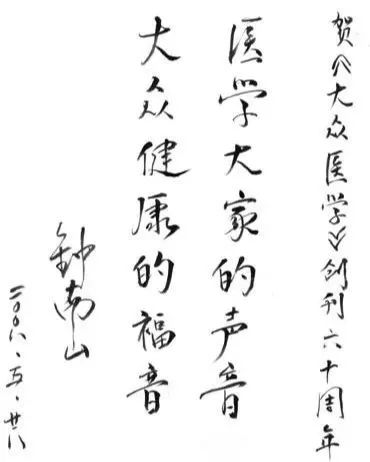 贺《大众医学》创刊六十周年
医学大家的声音
大众健康的福音
钟南山
二〇〇八、五、廿八